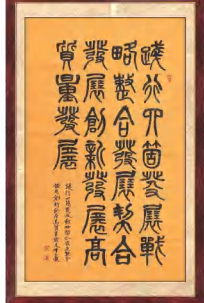 踐行四箇發展戰
略整合發展契合
發展創新發展高
質量發展